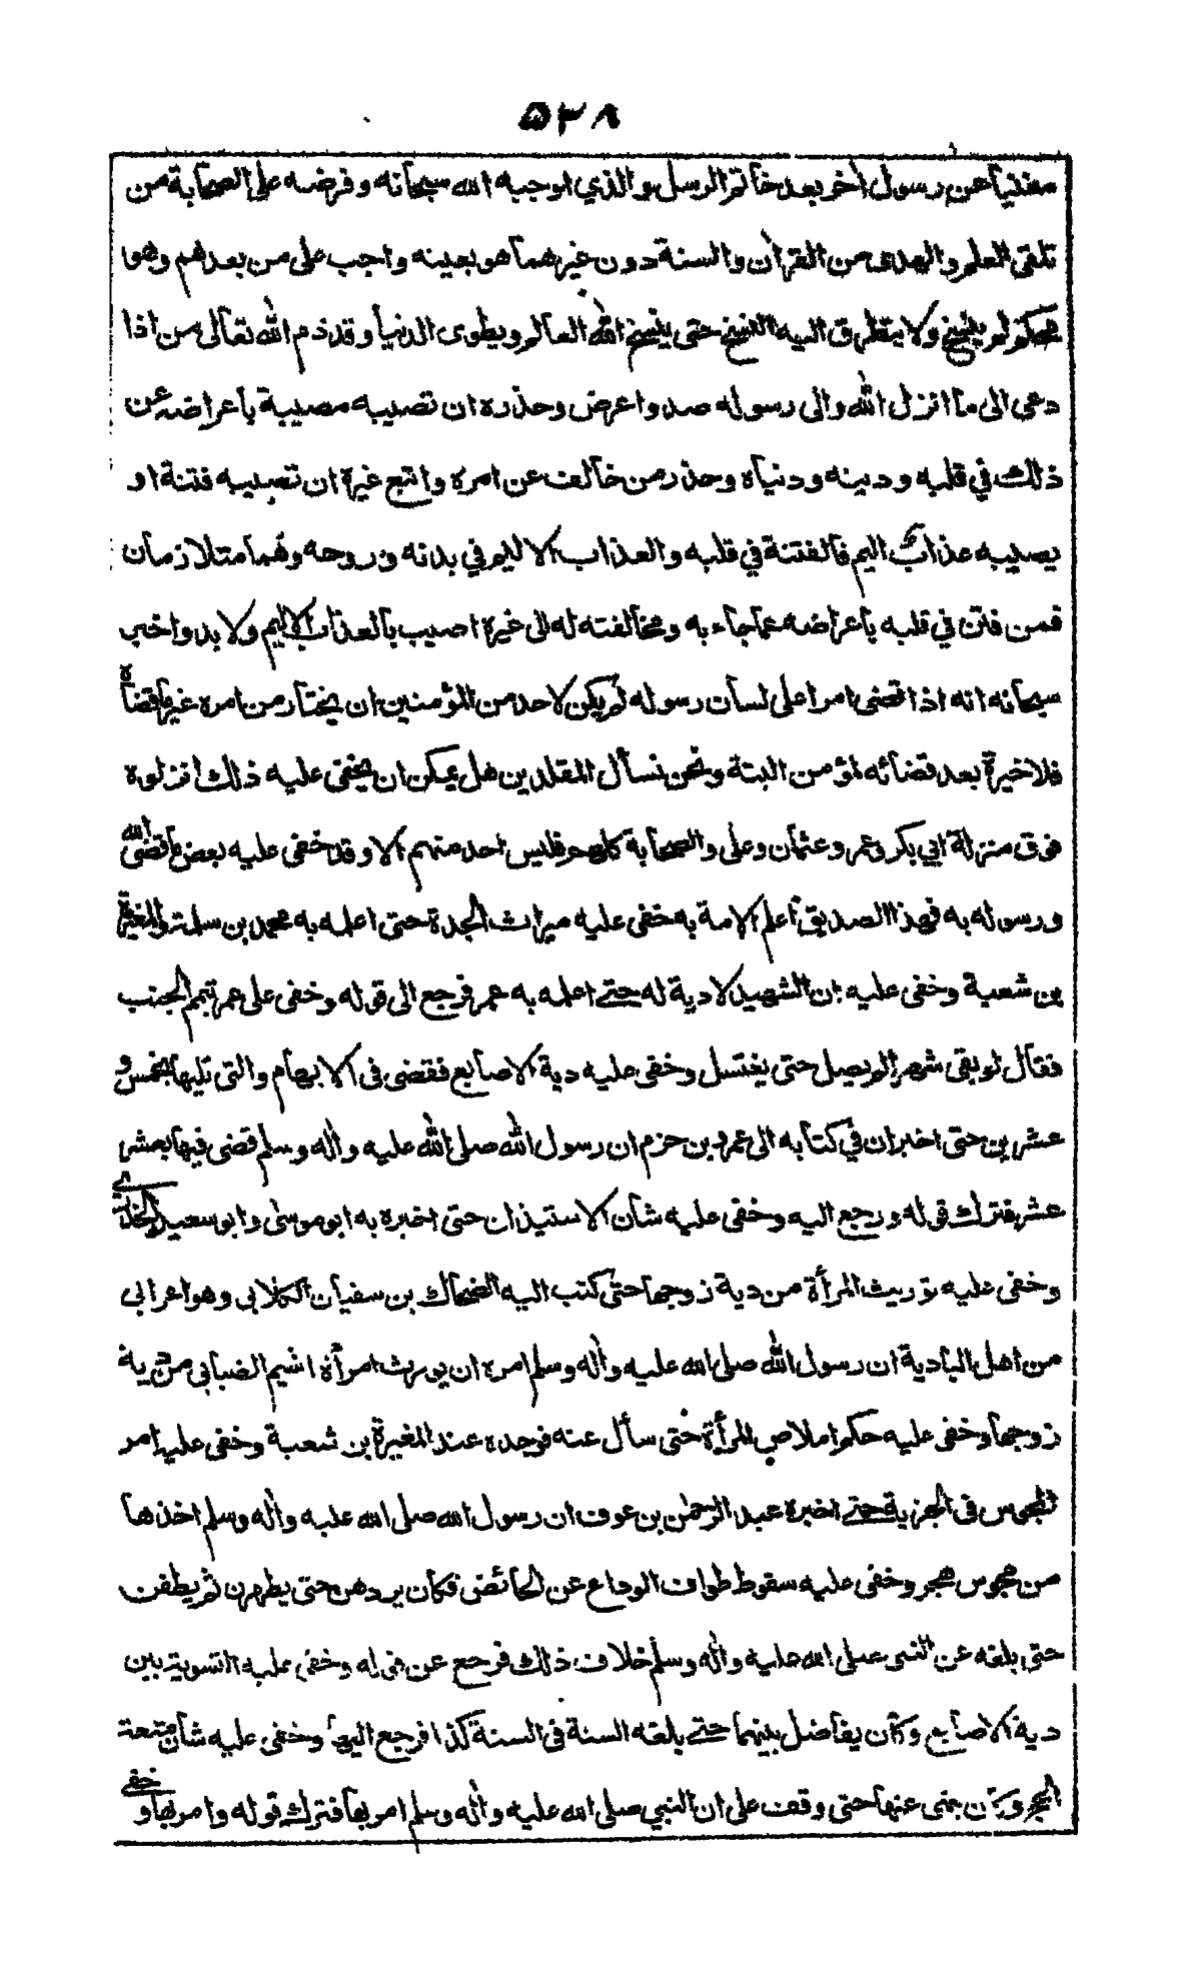 ٥٣٨
مغنيا عن رسول اخر بعد خاتم الرسل والذي اوجبه الله سبحانه وفرضه على الصحابة من
تلقى العلم والهدى من القرآن والسنة دون غيرهما هو بعينه واجب على من بعدهم وهو
محكم لم ينسخ ولا يتطرق اليه النسخ حتى ينسخ الله العالم ويطوى الدنيا وقد ذم الله تعالى من اذا
دعى الى ما انزل الله والى رسوله صد واعرض وحذره ان تصيبه مصيبة باعراضه عن
ذلك في قلبه ودينه ودنياه وحذر من خالف عن امره واتبع غيره ان تصيبه فتنة او
يصيبه عذاب اليم فالفتنة في قلبه والعذاب الاليم في بدنه وروحه وهما متلازمان
فمن فتن في قلبه باعراضه عما جاء به ومخالفته له الى غيره اصيب بالعذاب الاليم ولا بد واخبر
سبحانه انه اذا قضى امرا على لسان رسوله لم يكن لاحد من المؤمنين ان يختار من امره غير ما قضاه
فلا خيرة بعد قضائه لمؤمن البتة ونحن نسأل المقلدين هل يمكن ان يخفى عليه ذلك انزلوه
فوق منزلة ابي بكر وعمر وعثمان وعلى والصحابة كلهم فليس احد منهم الا وقد خفى عليه بعض ما قضى الله
ورسوله به فهذا الصديق اعلم الامة به خفى عليه ميراث الجدة حتى اعلمه به محمد بن سلمة والمغيرة
بن شعبة وخفى عليه ان الشهيد لا دية له حتى اعلمه به عمر فرجع الى قوله وخفى على عمر تيمم الجنب
فقال لو بقى شهرا لم يصل حتى يغتسل وخفى عليه دية الاصابع فقضى فى الابهام والتى تليها بخمس و
عشرين حتى اخبر ان في كتابه الى عمرو بن حزم ان رسول الله صلى الله عليه وآله وسلم قضى فيها بعشر
عشر فترك قوله ورجع اليه وخفى عليه شأن الاستيذان حتى اخبره به ابو موسى وابو سعيد الخدري
وخفى عليه توريث المرأة من دية زوجها حتى كتب اليه الضحاك بن سفيان الكلابى وهو اعرابي
من اهل البادية ان رسول الله صلى الله عليه وآله وسلم امره ان يورث امرأة اشيم الضبابى من دية
زوجها وخفى عليه حكم املاص المرأة حتى سأل عنه فوجده عند المغيرة بن شعبة وخفى عليه امر
المجوس فى الجزية حتى اخبره عبد الرحمن بن عوف ان رسول الله صلى الله عليه وآله وسلم اخذها
من مجوس هجر وخفى عليه سقوط طواف الوداع عن الحائض فكان يردهن حتى يطهرن ثم يطفن
حتى بلغه عن النبى صلى الله عليه وآله وسلم خلاف ذلك فرجع عن قوله وخفى عليه التسوية بين
دية الاصابع وكان يفاضل بينهما حتى بلغه السنة فى السنة كذا فرجع اليها وخفى عليه شأن متعة
الحج وكان ينهى عنها حتى وقف على ان النبي صلى الله عليه وآله وسلم امر بها فترك قوله وامر بها و خفى